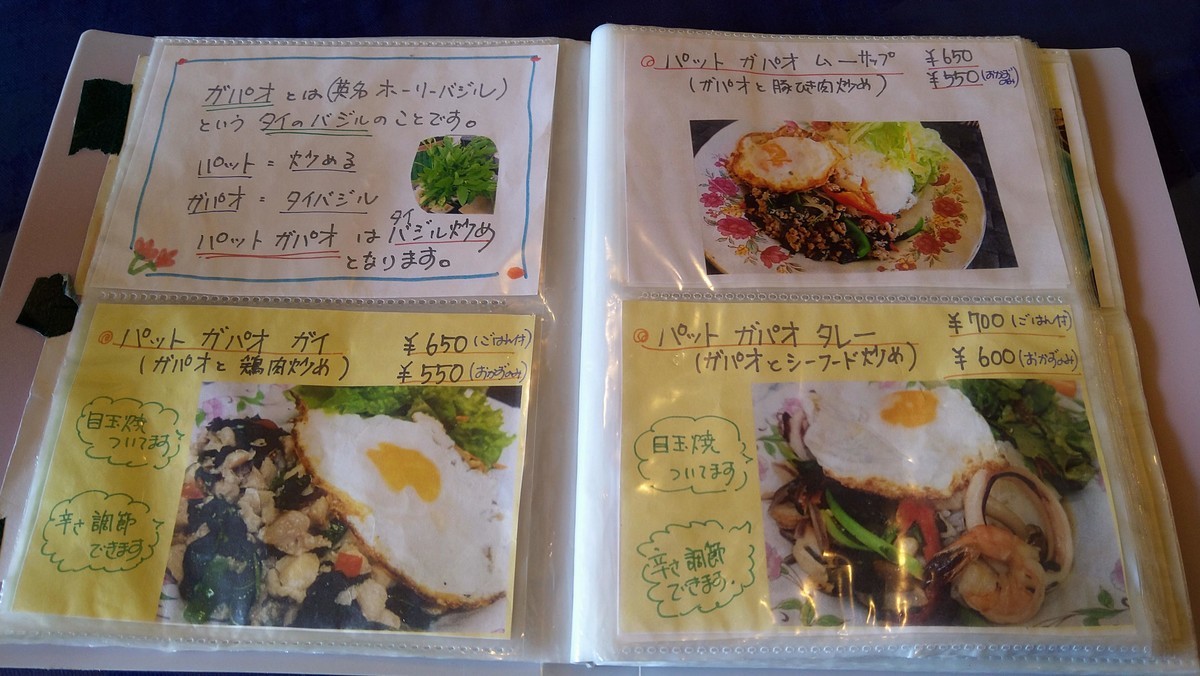 ガパオとは(英名 ホーリーバジル)
という タイのバジルのことです。
パット = 炒める
ガパオ = タイバジル
パット ガパオ は タイバジル炒め
となります。
パット ガパオ ムーサップ ￥650
(ガパオと豚ひき肉炒め) ￥550(おかずのみ)
パット ガパオ ガイ ￥650(ごはん付)
(ガパオと鶏肉炒め) ￥550(おかずのみ)
目玉焼
ついてます
辛さ調節
できます
パット ガパオ タレー ￥700(ごはん付)
(ガパオとシーフード炒め) ￥600(おかずのみ)
目玉焼
ついてます
辛さ調節
できます